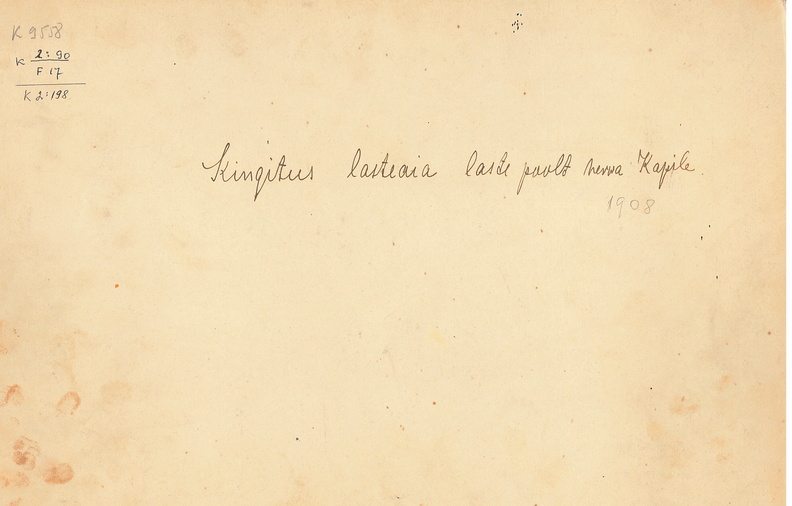 K 9558
K 2:90
F 17
K 2:198
Kingitus lasteaia laste poolt herra Kapile.
1908